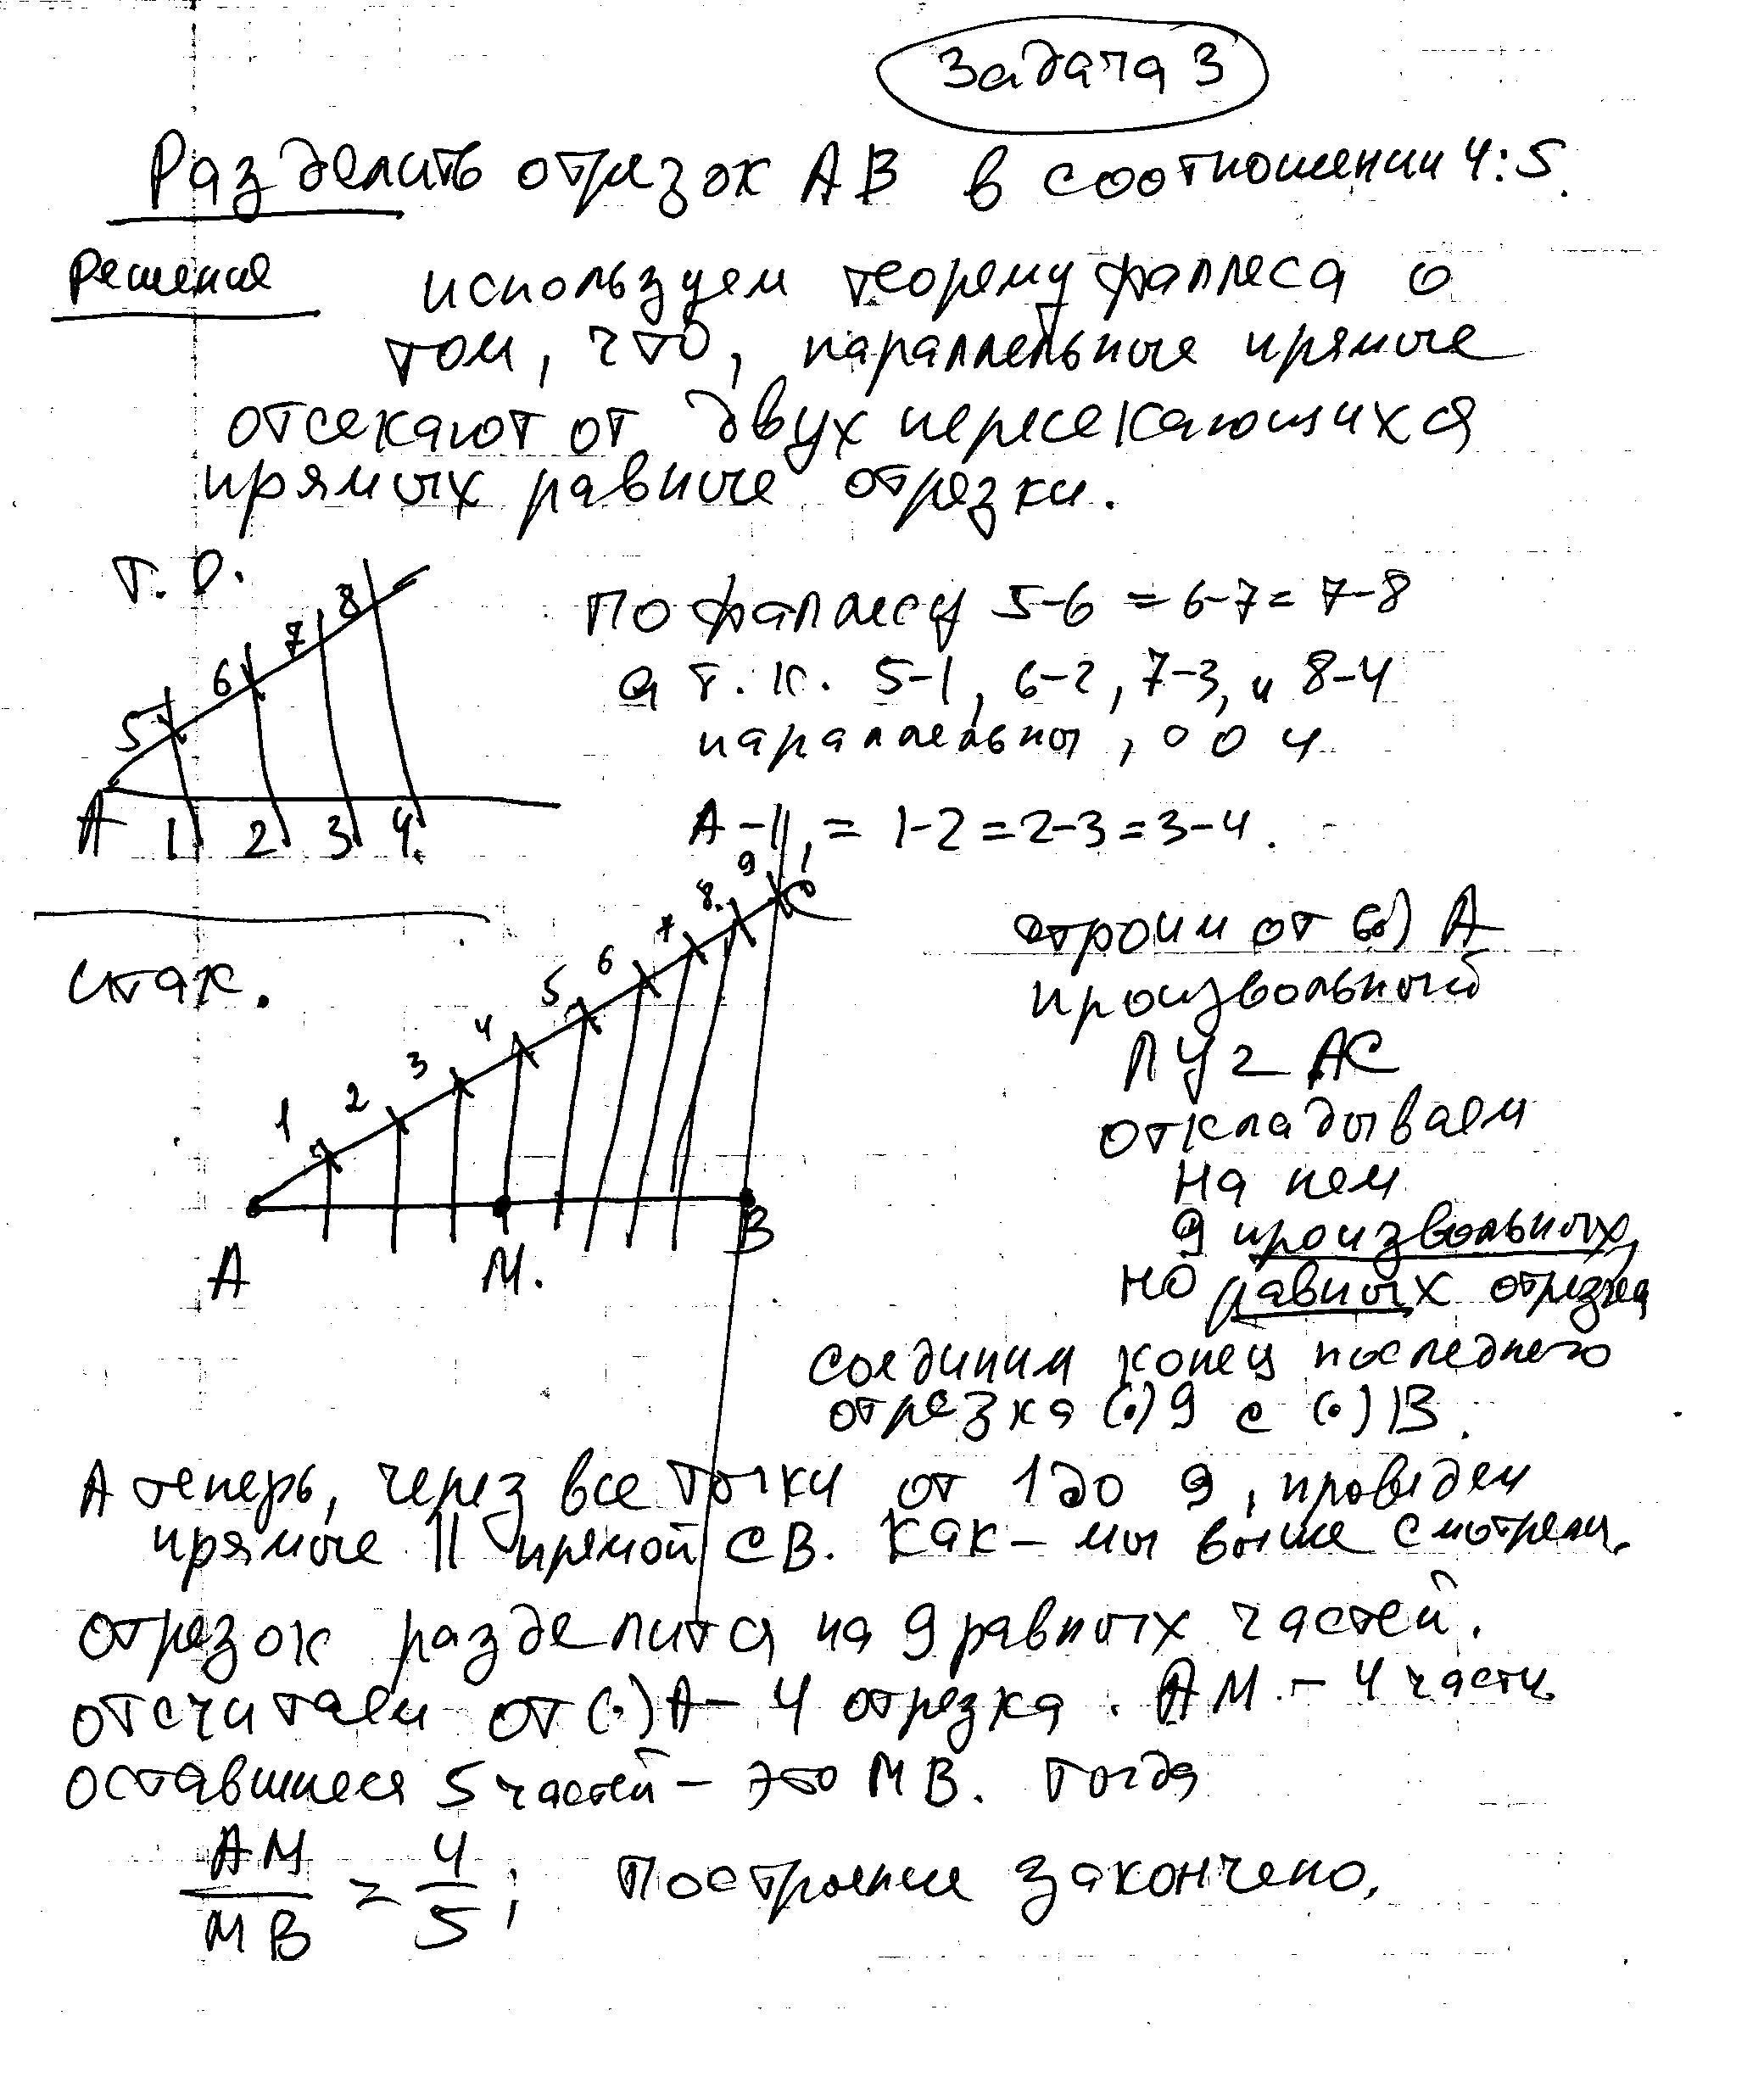 Задача 3
Разделить отрезок AB в соотношении 4:5.
Решение
используем теорему фаллеса о
том, что, параллельные прямые
отсекают от двух пересекающихся
прямых равные отрезки.
т. о.
5 6 7 8
A 1 2 3 4.
По фаллесу 5-6 = 6-7 = 7-8
а т. к. 5-1, 6-2, 7-3, и 8-4
параллельны,
A-1, = 1-2 = 2-3 = 3-4.
итак.
1 2 3 4 5 6 7 8. 9 C
A M. B
строим от (•) A
произвольный
луч AC
откладываем
на нем
9 произвольных,
но равных отрезка
соединим конец последнего
отрезка (•) 9 с (•) B.
А теперь, через все точки от 1 до 9, проведем
прямые || прямой CB. Как - мы выше смотрели.
отрезок разделится на 9 равных частей.
отсчитаем от (•) A - 4 отрезка. AM. - 4 части.
оставшиеся 5 частей - это MB. Тогда
AM/MB = 4/5; Построение закончено,